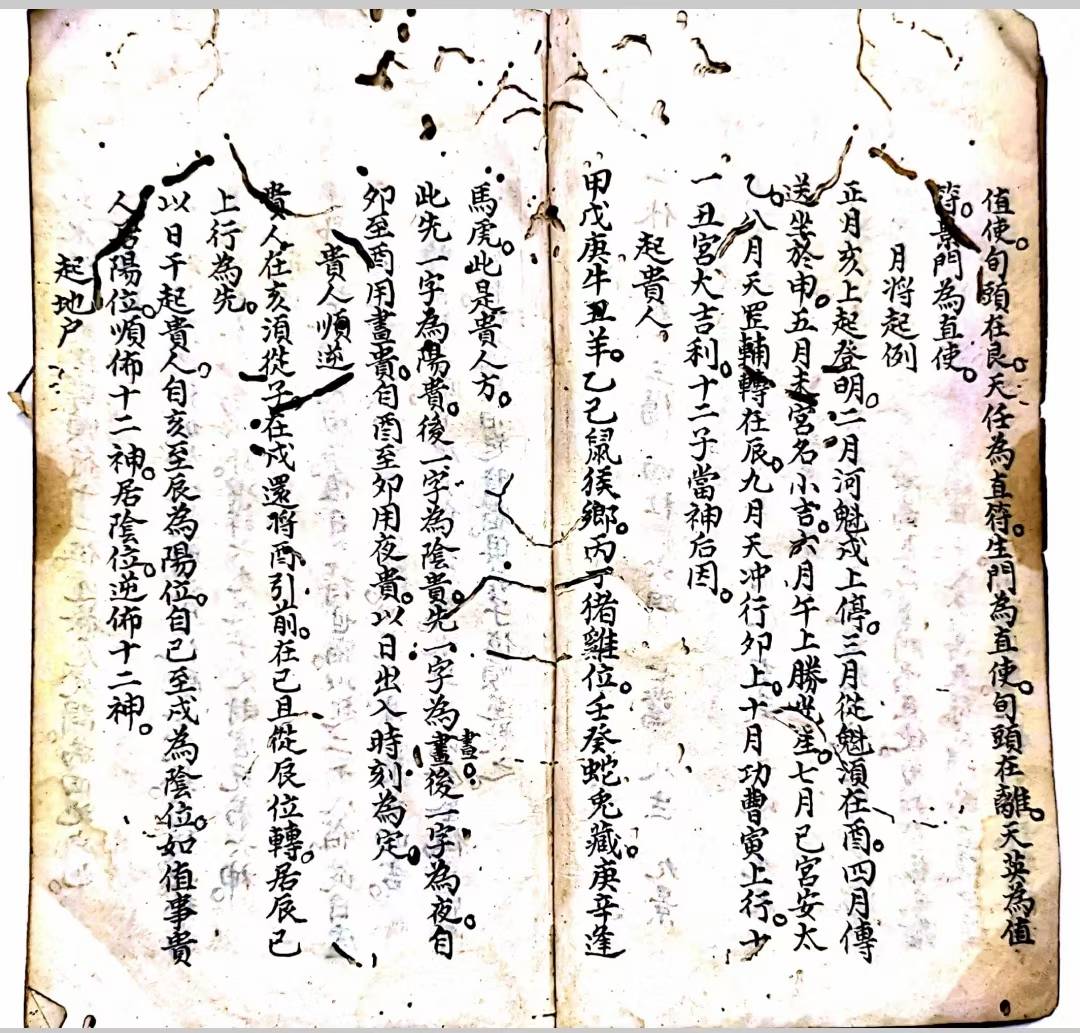 值使。旬頭在艮。天任為直符。生門為直使。旬頭在離。天英為值
符。景門為直使。
月將起例
正月亥上起登明。二月河魁戍上停。三月從魁湏在酉。四月傳
送坐於申。五月未宮名小吉。六月午上勝光生。七月巳宮安太
乙。八月天罡輔轉在辰。九月天冲行夘上。十月功曹寅上行。十
一丑宮大吉利。十二子當神后因。
起貴人。
甲戊庚牛丑羊。乙己鼠猴鄉。丙丁猪雞位。壬癸蛇兎藏。庚辛逢
馬虎。此是貴人方。
此先一字為陽貴。後一字為陰貴。先一字為晝。後一字為夜。自
夘至酉用晝貴。自酉至夘用夜貴。以日出入時刻為定。
貴人順逆
貴人在亥湏從子。在戍還將酉引前。在巳且從辰位轉。居辰巳
上行為先。
以日干起貴人。自亥至辰為陽位。自巳至戍為陰位。如值事貴
人居陽位。順佈十二神。居陰位。逆佈十二神。
起地户